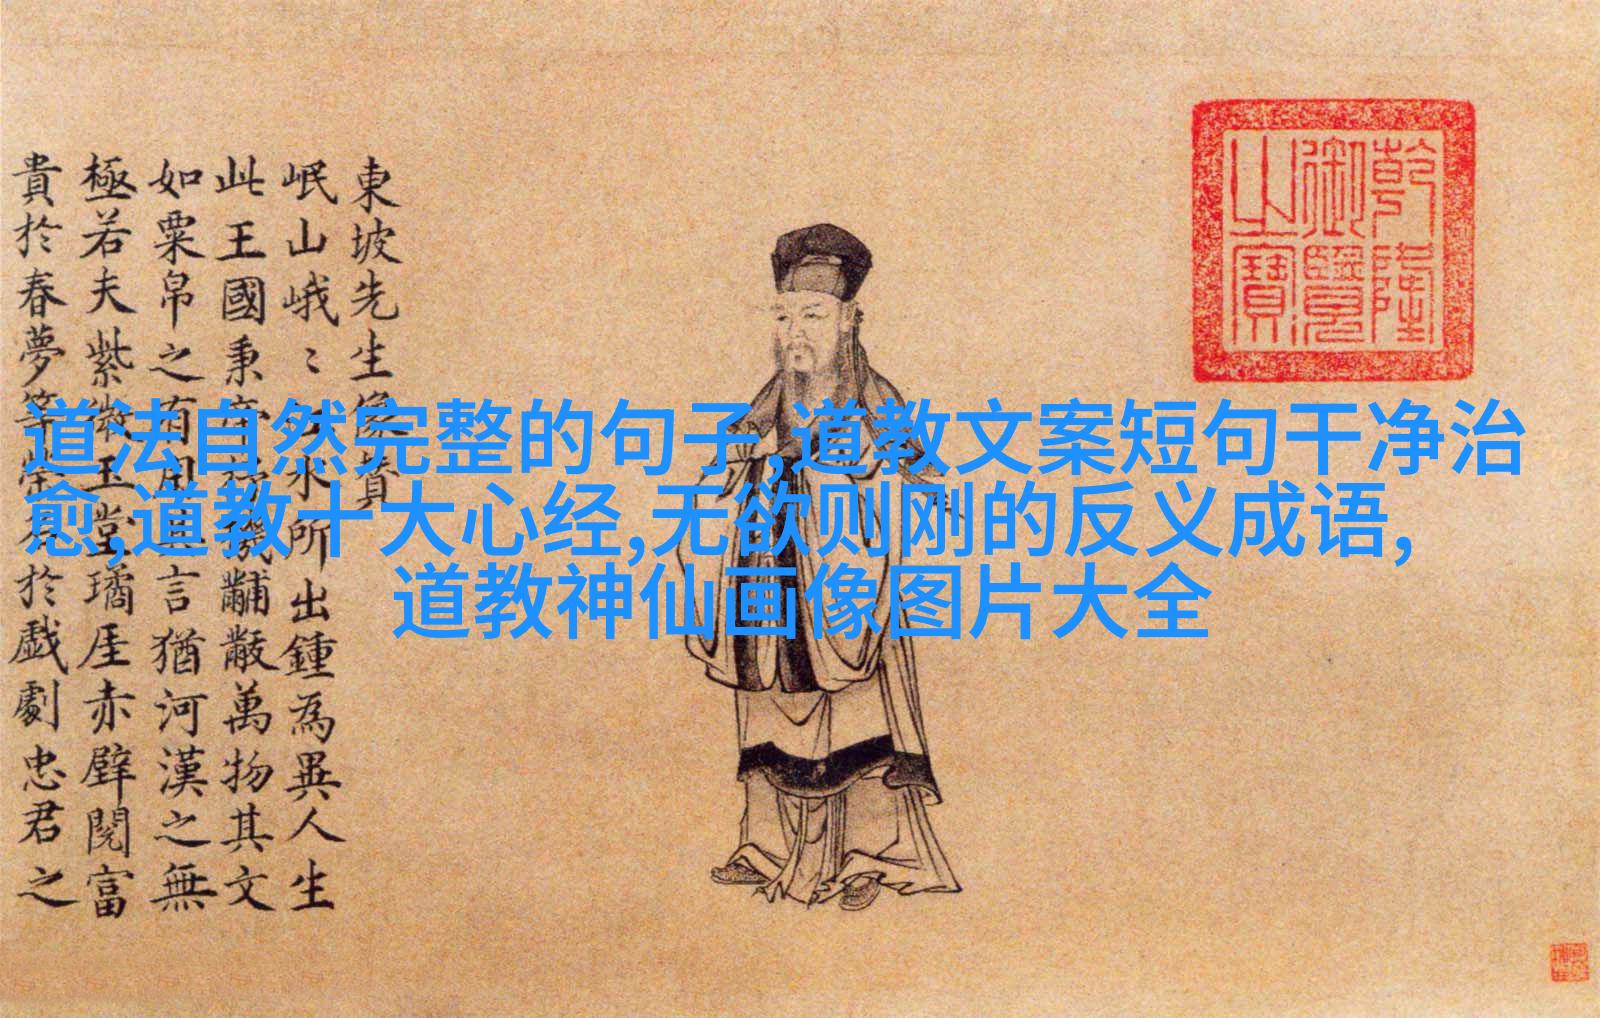 東坡先生像贊
岷山峨〻江水所出鍾為異人生
此王國秉帝杼機黼黻萬物其文
如粟帛之有用其言猶河漢之無
極若夫紫微玉堂璚厓赤壁閱富
貴於春夢等榮名於戲劇忠君之
乾隆
御覽
之寶
道法自然完整的句子,道教文案短句干净治
愈,道教十大心经,无欲则刚的反义成语,
道教神仙画像图片大全